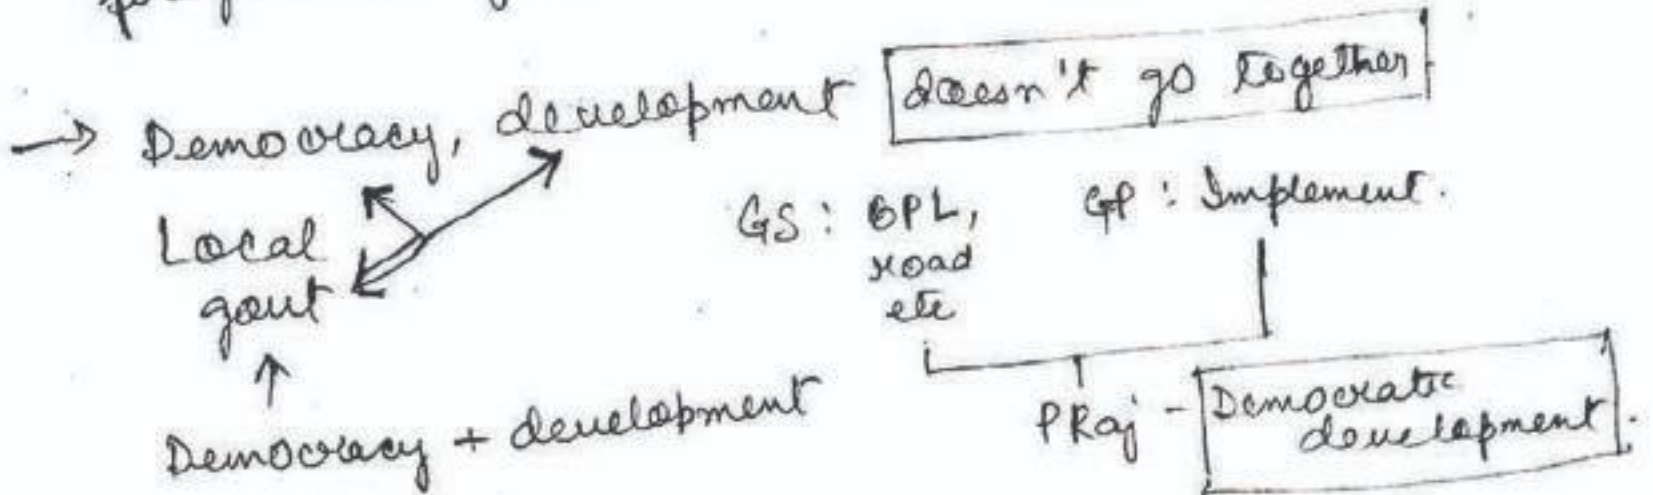 → Democracy, development doesn't go together
Local
govt
Democracy + development
GS : BPL,
road
etc
GP : Implement.
PRaj - Democratic
development.